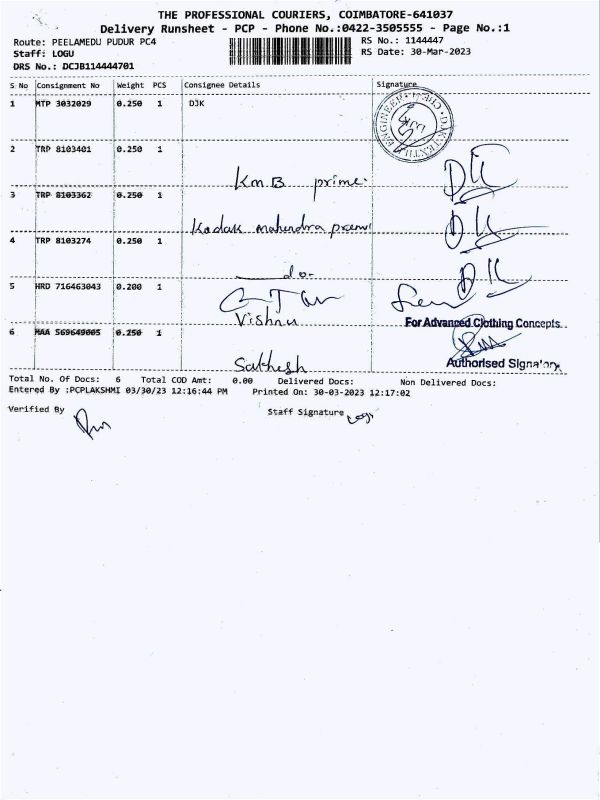 THE PROFESSIONAL COURIERS, COIMBATORE-641037
Delivery Runsheet - PCP - Phone No.:0422-3505555 - Page No.:1
Route: PEELAMEDU PUDUR PC4
RS No.: 1144447
Staff: LOGU
RS Date: 30-Mar-2023
DRS No.: DCJB114444701
S No Consignment No Weight PCS Consignee Details Signature
1 MTP 3032029 0.250 1 DJK
ENGINEER
2 TRP 8103401 0.250 1
KMB prime.
3 TRP 8103362 0.250 1
Kodak mahendra
4 TRP 8103274 0.250 1
do-
5 HRD 716463043 0.200 1
Vishnu
For Advanced Clothing Concepts.
6 MAA 569649005 0.250 1
Sakhesh
Authorised Signatory.
Total No. Of Docs: 6 Total COD Amt: 0.00 Delivered Docs: Non Delivered Docs:
Entered By :PCPLAKSHMI 03/30/23 12:16:44 PM Printed On: 30-03-2023 12:17:02
Verified By
Staff Signature Logu